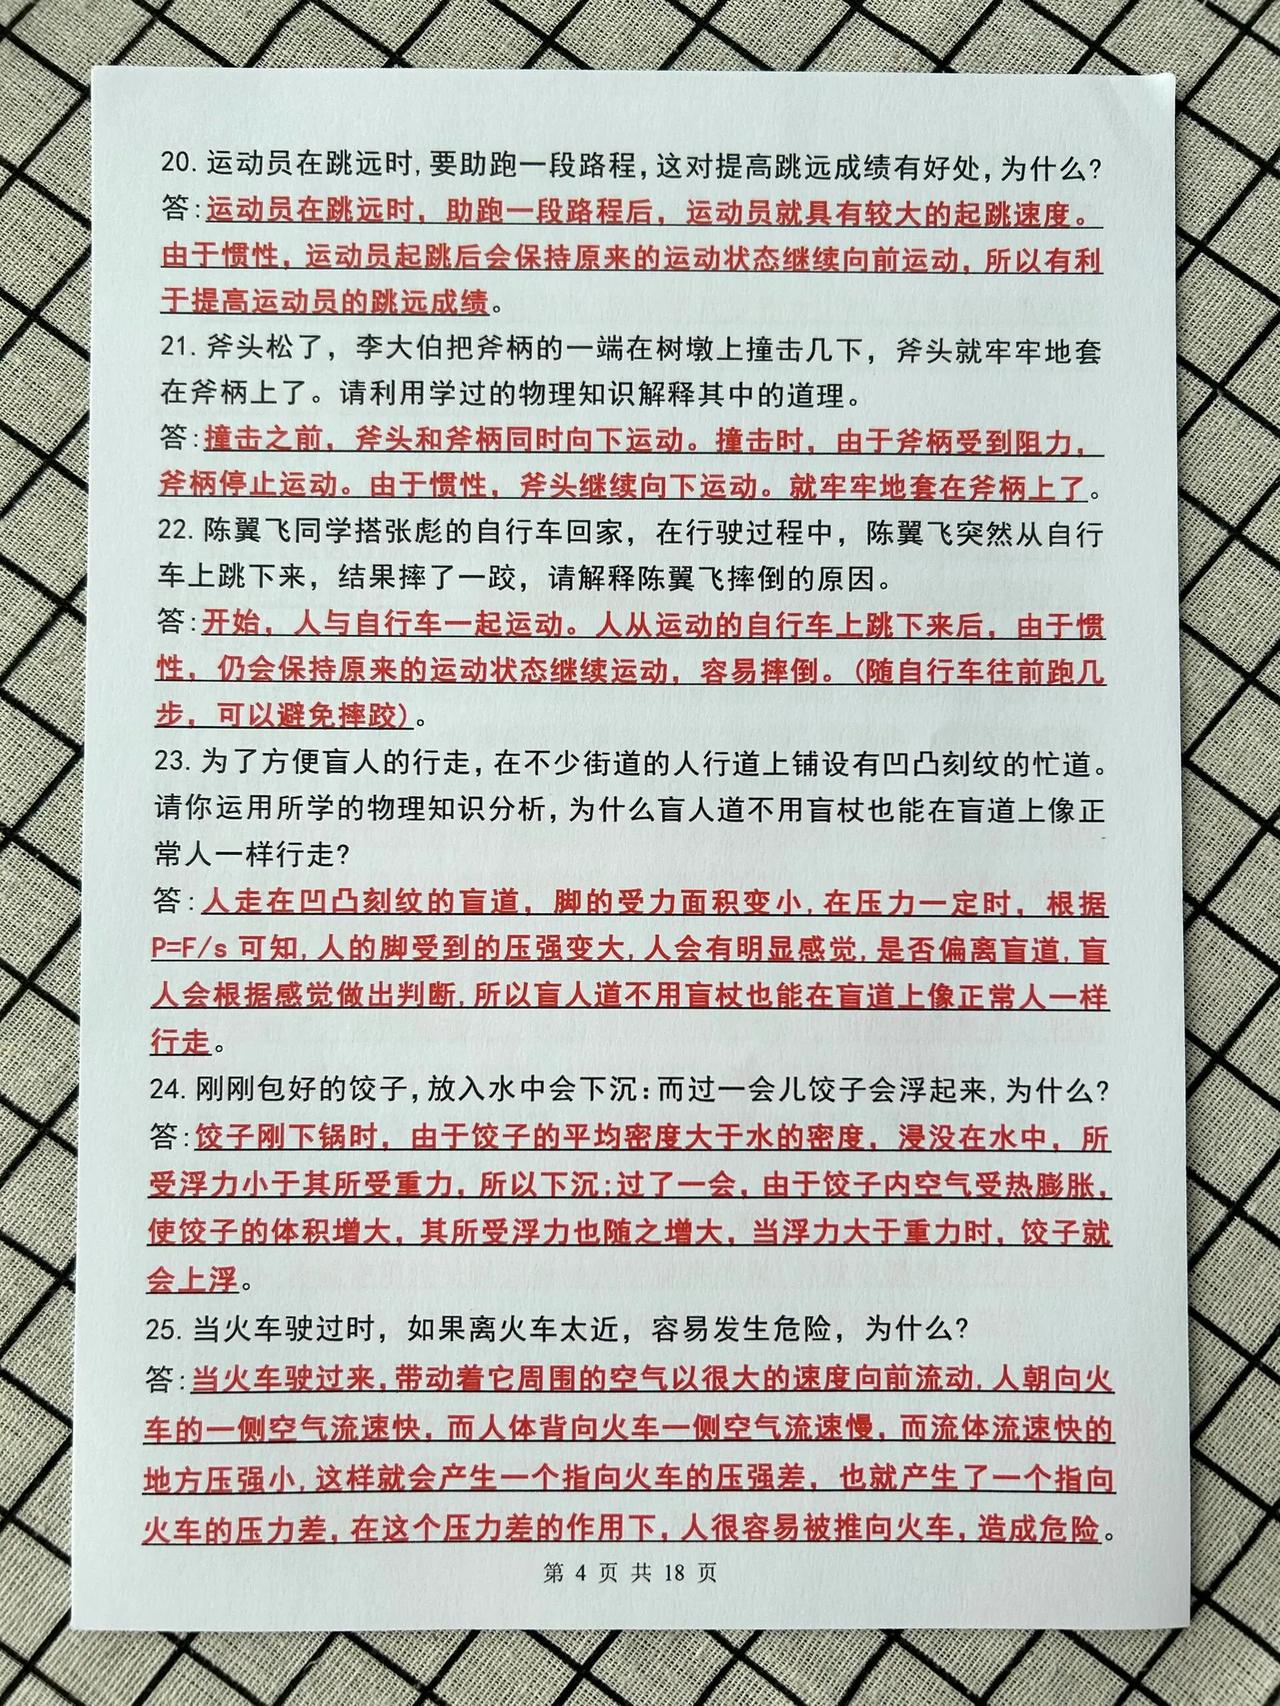 20. 运动员在跳远时,要助跑一段路程,这对提高跳远成绩有好处,为什么?
答:运动员在跳远时，助跑一段路程后，运动员就具有较大的起跳速度。
由于惯性，运动员起跳后会保持原来的运动状态继续向前运动，所以有利
于提高运动员的跳远成绩。
21. 斧头松了，李大伯把斧柄的一端在树墩上撞击几下，斧头就牢牢地套
在斧柄上了。请利用学过的物理知识解释其中的道理。
答:撞击之前，斧头和斧柄同时向下运动。撞击时，由于斧柄受到阻力，
斧柄停止运动。由于惯性，斧头继续向下运动。就牢牢地套在斧柄上了。
22. 陈翼飞同学搭张彪的自行车回家，在行驶过程中，陈翼飞突然从自行
车上跳下来，结果摔了一跤，请解释陈翼飞摔倒的原因。
答:开始，人与自行车一起运动。人从运动的自行车上跳下来后，由于惯
性，仍会保持原来的运动状态继续运动，容易摔倒。(随自行车往前跑几
步，可以避免摔跤)。
23. 为了方便盲人的行走,在不少街道的人行道上铺设有凹凸刻纹的忙道。
请你运用所学的物理知识分析,为什么盲人道不用盲杖也能在盲道上像正
常人一样行走?
答:人走在凹凸刻纹的盲道，脚的受力面积变小,在压力一定时，根据
P=F/s 可知,人的脚受到的压强变大,人会有明显感觉,是否偏离盲道,盲
人会根据感觉做出判断,所以盲人道不用盲杖也能在盲道上像正常人一样
行走。
24. 刚刚包好的饺子,放入水中会下沉:而过一会儿饺子会浮起来,为什么?
答:饺子刚下锅时，由于饺子的平均密度大于水的密度，浸没在水中，所
受浮力小于其所受重力，所以下沉;过了一会，由于饺子内空气受热膨胀，
使饺子的体积增大，其所受浮力也随之增大，当浮力大于重力时，饺子就
会上浮。
25. 当火车驶过时，如果离火车太近，容易发生危险，为什么?
答:当火车驶过来,带动着它周围的空气以很大的速度向前流动,人朝向火
车的一侧空气流速快，而人体背向火车一侧空气流速慢，而流体流速快的
地方压强小,这样就会产生一个指向火车的压强差，也就产生了一个指向
火车的压力差,在这个压力差的作用下，人很容易被推向火车，造成危险。
第 4 页 共 18 页